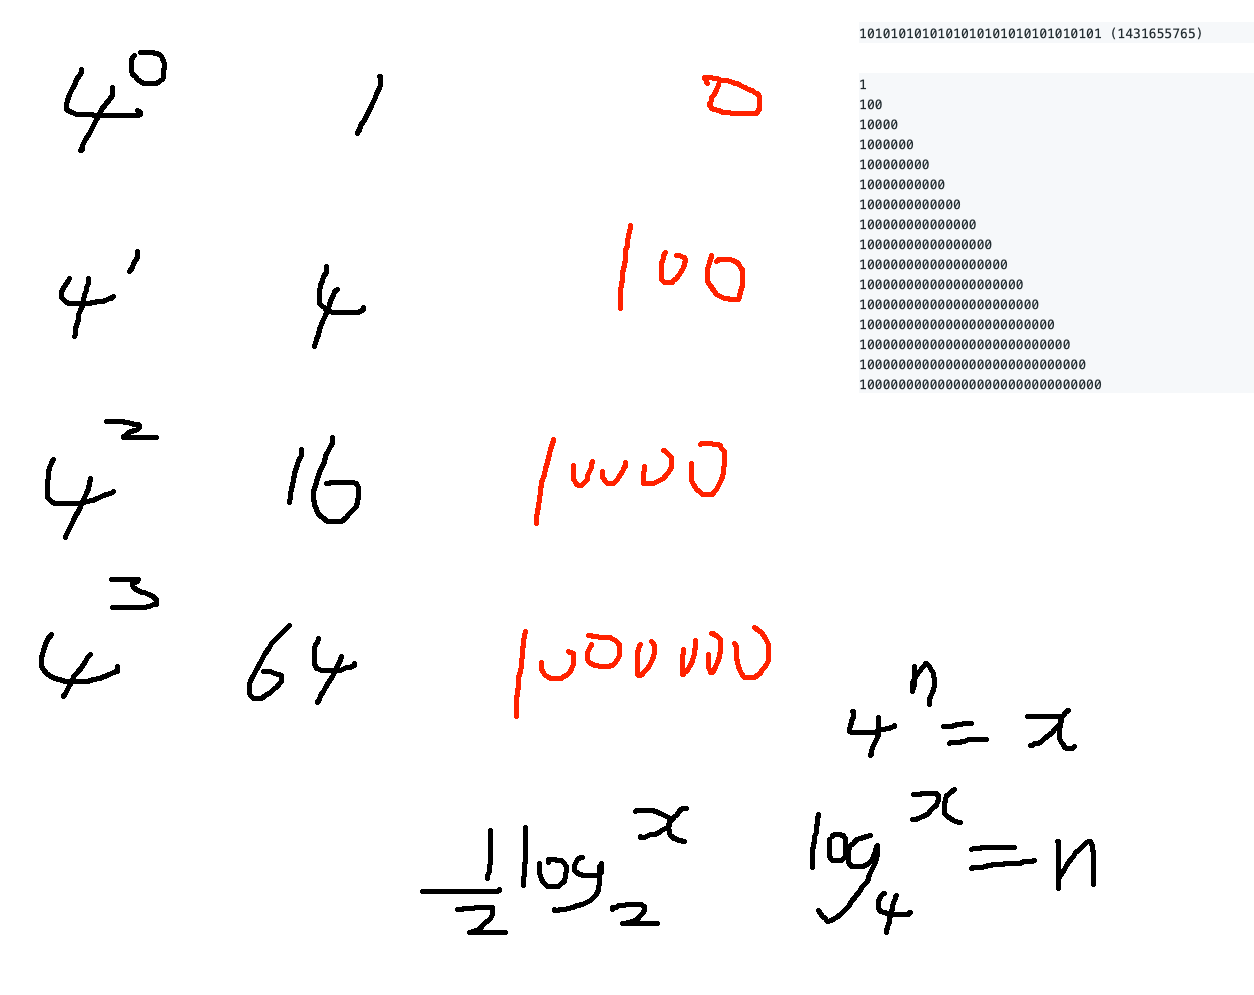 1010101010101010101010101010101 (1431655765)
4⁰ 1 0
4¹ 4 100
4² 16 10000
4³ 64 1000000
1
100
10000
1000000
100000000
10000000000
1000000000000
100000000000000
10000000000000000
1000000000000000000
100000000000000000000
10000000000000000000000
1000000000000000000000000
100000000000000000000000000
10000000000000000000000000000
1000000000000000000000000000000
4ⁿ = x
1/2 log₂ˣ
log₄ˣ = n